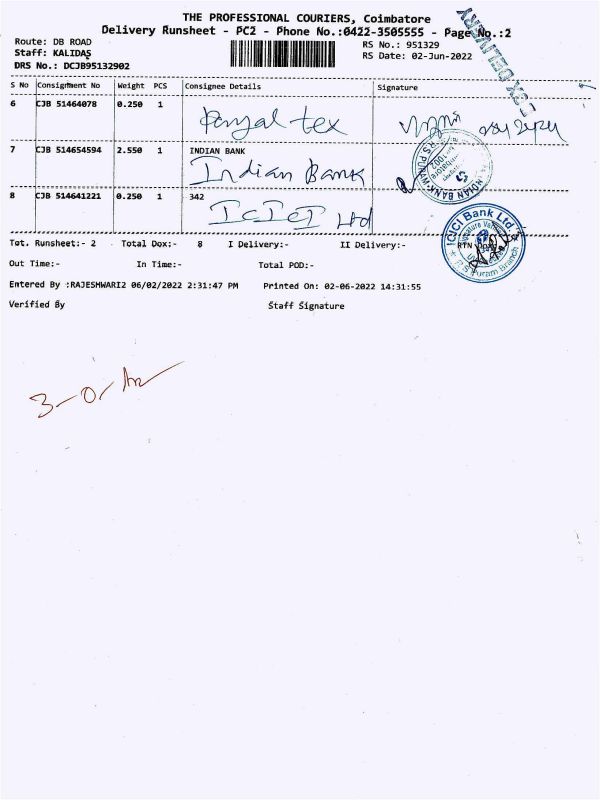 THE PROFESSIONAL COURIERS, Coimbatore
Delivery Runsheet - PC2 - Phone No.:0422-3505555 - Page No.:2
CBX DELIVERY
Route: DB ROAD
RS No.: 951329
Staff: KALIDAS
RS Date: 02-Jun-2022
DRS No.: DCJB95132902
S No Consignment No Weight PCS Consignee Details Signature
6 CJB 51464078 0.250 1
tex
7 CJB 514654594 2.550 1 INDIAN BANK
Indian Bank
INDIAN BANK
8 CJB 514641221 0.250 1 342
ICICI Ltd
ICICI Bank Ltd.
R.S.Puram Branch
Tot. Runsheet:- 2 Total Dox:- 8 I Delivery:- II Delivery:- RTN Dox:-
Out Time:- In Time:- Total POD:-
Entered By :RAJESHWARI2 06/02/2022 2:31:47 PM Printed On: 02-06-2022 14:31:55
Verified By Staff Signature